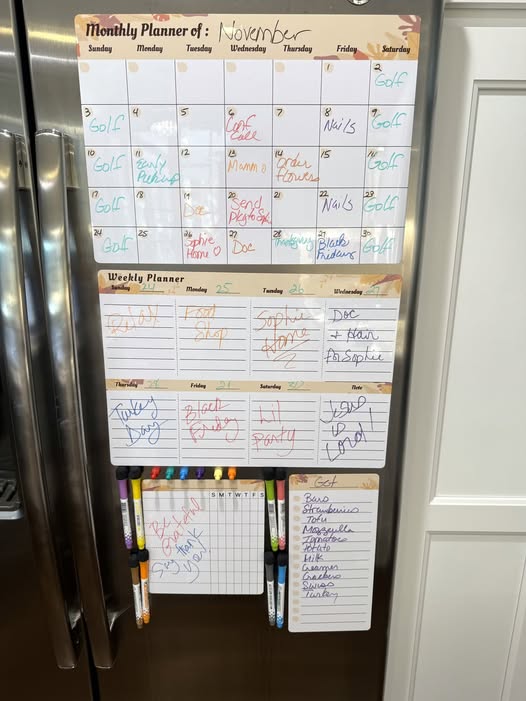 Monthly Planner of: November
Sunday Monday Tuesday Wednesday Thursday Friday Saturday
1 2
Golf
3 4 5 6 7 8 9
Golf Conf Call Nails Golf
10 11 12 13 14 15
Golf Early Pickup Mammo Order Flowers Golf
17 18 19 20 21 22 23
Golf Doc Send Nails Golf
24 25 26 27 28
Golf Sophie Home Doc Thanksgiving Black Friday Golf
Weekly Planner
Sunday 24 Monday 25 Tuesday 26 Wednesday 27
Relax Food Sophie Doc
Shop Home + Hair
for Sophie
Thursday 28 Friday 29 Saturday 30 Note
Turkey Black Lil Jesus
Day Friday Party is
Lord!
S M T W T F S
Be
Grateful
Say thank
you!
Get
Bars
Strawberries
Tofu
Mozzarella
Tomatoes
Potato
Milk
Creamer
Crackers
Swiss
Turkey